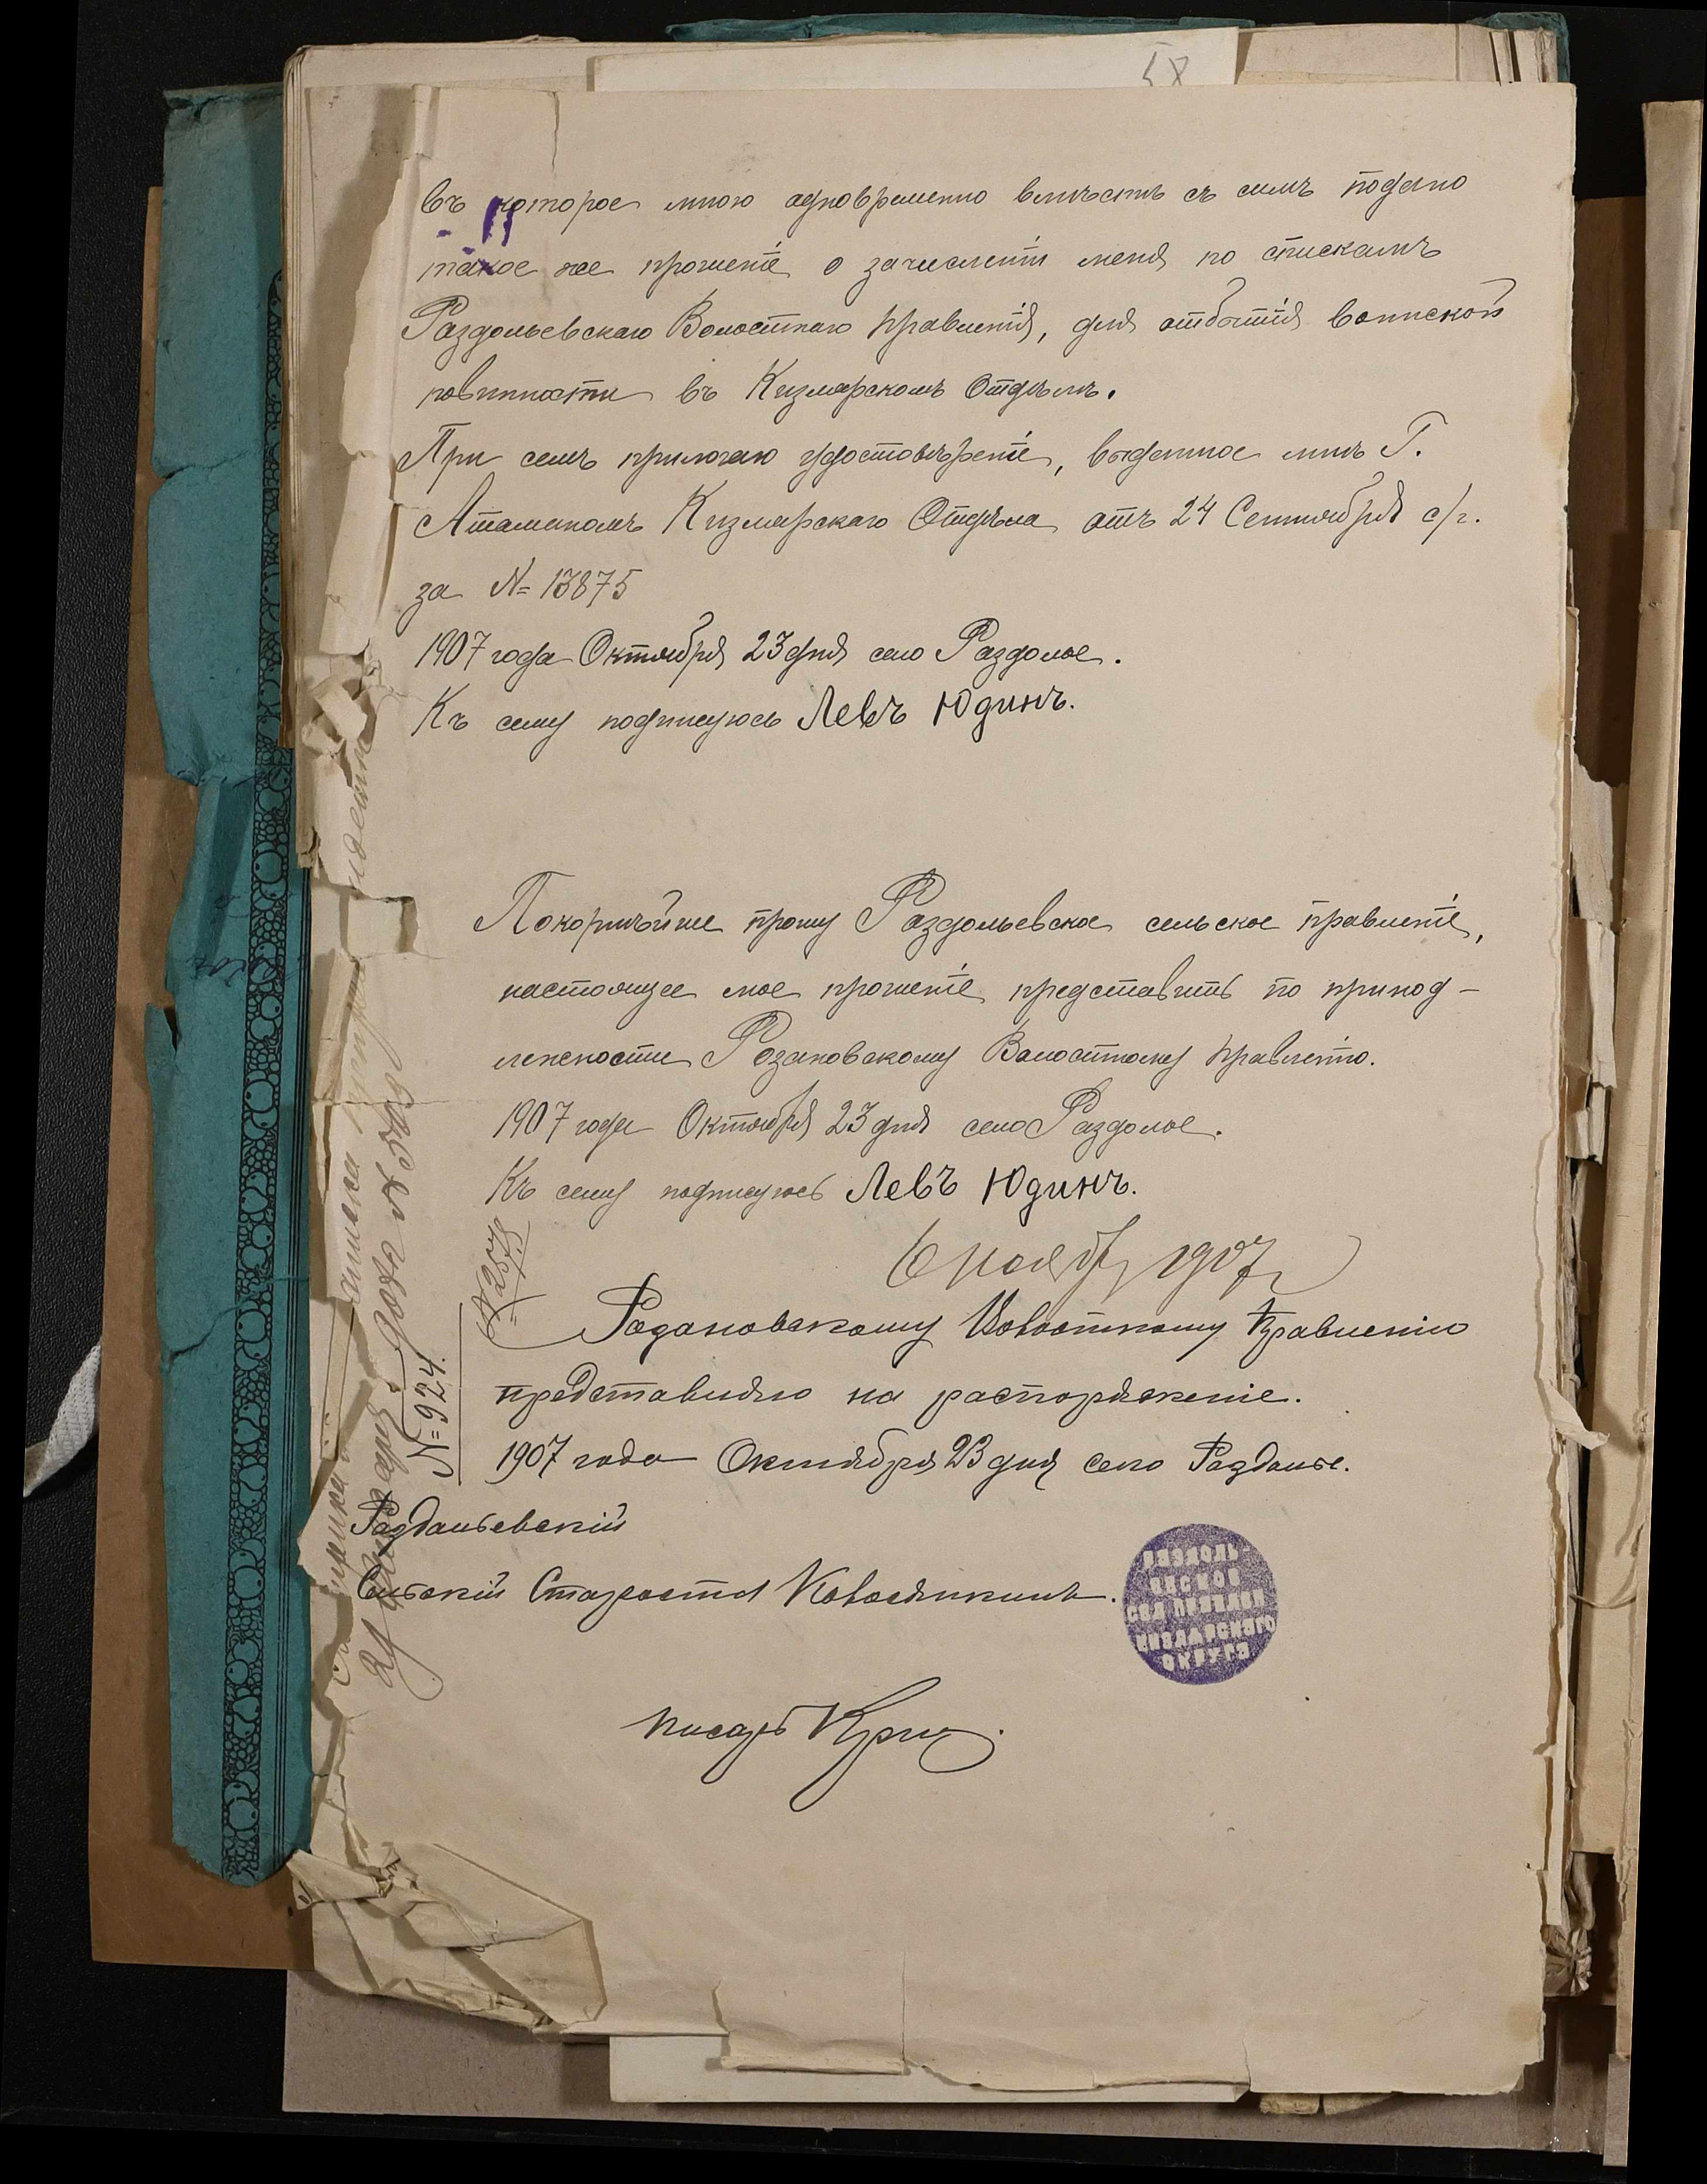 58
въ которое мною одновременно вмѣстѣ съ симъ подано
такое же прошеніе о зачисленіи меня по спискамъ
Раздольевскаго Волостнаго правленія, для отбытія воинской
повинности въ Кизлярскомъ Отдѣлѣ.
При семъ прилогаю удостовѣреніе, выданное мнѣ Г.
Атаманомъ Кизлярскаго Отдѣла отъ 24 Сентября с/г.
за N= 13875
1907 года Октября 23 дня село Раздолье.
Къ сему подписуюсь Левъ Юдинъ.
Покорнѣйше прошу Раздольевское сельское правленіе,
настоящее мое прошеніе представить по принод-
лежности Розановскому Волостному правленію.
1907 года Октября 23 дня село Раздолье.
Къ сему подписуюсь Левъ Юдинъ.
6 Ноября 1907 г
№ 2578
Розановскому Волостному Правленію
представляю на распоряженіе.
N= 924.
1907 года Октября 23 дня село Раздолье.
Раздольевскій
Сельскій Староста
РАЗДОЛЬ-
ВСКОЕ
СЕЛ ПРАВЛЕН
КИЗЛЯРСКАГО
ОКРУГА
писарь